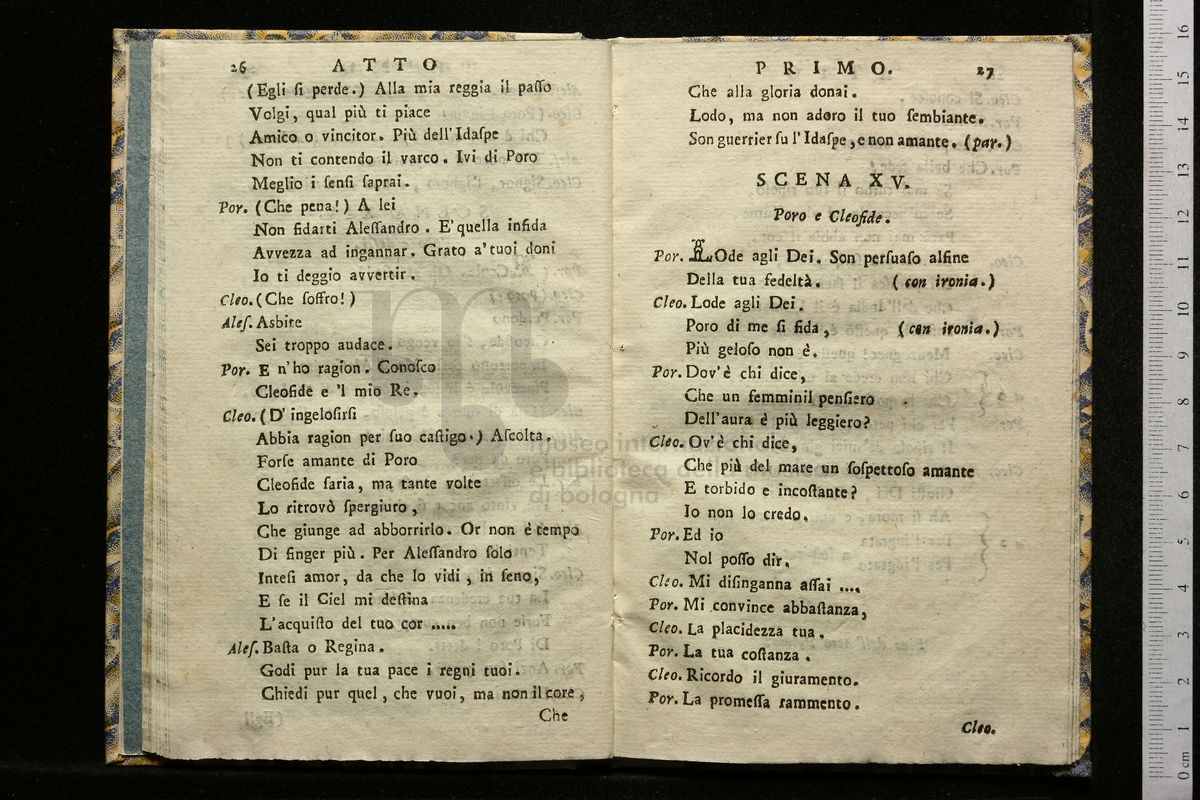 26 ATTO
(Egli ſi perde.) Alla mia reggia il paſſo
Volgi, qual più ti piace
Amico o vincitor. Più dell'Idaſpe
Non ti contendo il varco. Ivi di Poro
Meglio i ſenſi ſaprai.
Por. (Che pena!) A lei
Non fidarti Aleſſandro. E' quella infida
Avvezza ad ingannar. Grato a' tuoi doni
Io ti deggio avvertir.
Cleo. (Che ſoffro!)
Aleſ. Asbite
Sei troppo audace.
Por. E n'ho ragion. Conoſco
Cleofide e 'l mio Re.
Cleo. (D' ingeloſirſi
Abbia ragion per ſuo caſtigo.) Aſcolta.
Forſe amante di Poro
Cleofide ſaria, ma tante volte
Lo ritrovò ſpergiuro,
Che giunge ad abborrirlo. Or non è tempo
Di finger più. Per Aleſſandro ſolo
Inteſi amor, da che lo vidi, in ſeno,
E ſe il Ciel mi deſtina
L'acquiſto del tuo cor .....
Aleſ. Baſta o Regina.
Godi pur la tua pace i regni tuoi.
Chiedi pur quel, che vuoi, ma non il core,
Che
PRIMO. 27
Che alla gloria donai.
Lodo, ma non adoro il tuo ſembiante.
Son guerrier ſu l'Idaſpe, e non amante. (par.)
SCENA XV.
Poro e Cleofide.
Por. LOde agli Dei. Son perſuaſo alfine
Della tua fedeltà. (con ironia.)
Cleo. Lode agli Dei.
Poro di me ſi fida, (con ironia.)
Più geloſo non è.
Por. Dov'è chi dice,
Che un femminil penſiero
Dell'aura è più leggiero?
Cleo. Ov'è chi dice,
Che più del mare un ſoſpettoſo amante
E torbido e incoſtante?
Io non lo credo.
Por. Ed io
Nol poſſo dir.
Cleo. Mi diſinganna aſſai ....
Por. Mi convince abbaſtanza,
Cleo. La placidezza tua.
Por. La tua coſtanza.
Cleo. Ricordo il giuramento.
Por. La promeſſa rammento.
Cleo.
m
museo
e biblioteca
di bologna
0 cm 1 2 3 4 5 6 7 8 9 10 11 12 13 14 15 16